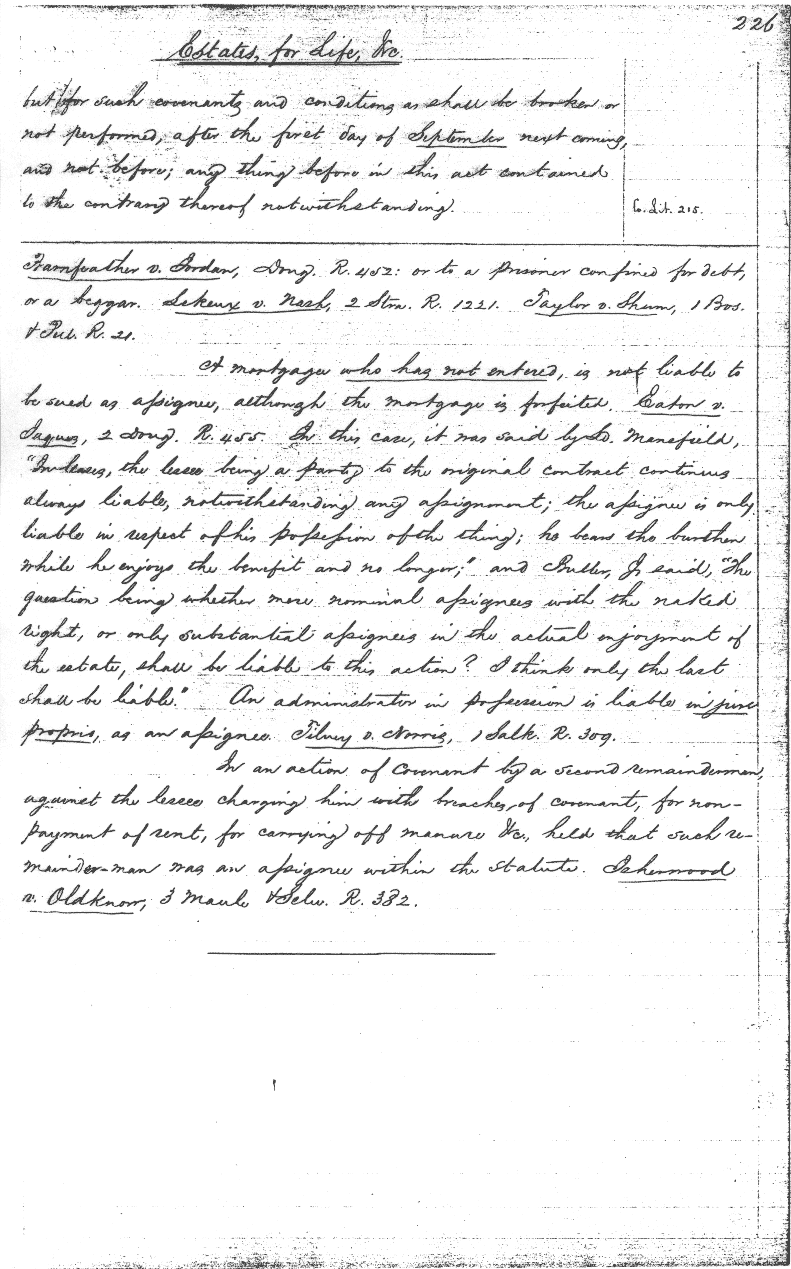 226
Estates, for Life, &c.
but for such covenants and conditions as shall be broken or
not performed, after the first day of September next coming,
and not before; any thing before in this act contained
to the contrary thereof notwithstanding.
Co. Lit. 215.
v. Jordan, Doug. R. 452: or to a prisoner confined for debt,
or a beggar. Lekeux v. Nash, 2 Stra. R. 1221. Taylor v. Shum, 1 Bos.
& Pul. R. 21.
A mortgagee who has not entered, is not liable to
be sued as assignee, although the mortgage is forfeited. Eaton v.
Jaques, 2 Doug. R. 455. In this case, it was said by Ld. Mansfield,
"In leases, the lessee being a party to the original contract continues
always liable, notwithstanding any assignment; the assignee is only
liable in respect of his possession of the thing; he bears the burthen
while he enjoys the benefit and no longer;" and Buller, J. said, "The
question being whether mere nominal assignees with the naked
right, or only substantial assignees in the actual enjoyment of
the estate, shall be liable to this action? I think only the last
shall be liable." An administrator in possession is liable in jure
proprio, as an assignee. Tilney v. Norris, 1 Salk. R. 309.
In an action of covenant by a second remainderman,
against the lessee charging him with breaches, of covenant, for non-
payment of rent, for carrying off manure &c., held that such re-
mainder-man was an assignee within the statute. Isherwood
v. Oldknow, 3 Maule & Selw. R. 382.